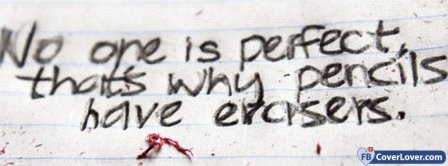 No one is perfect,
that's why pencils
have erasers.
FB CoverLover.com